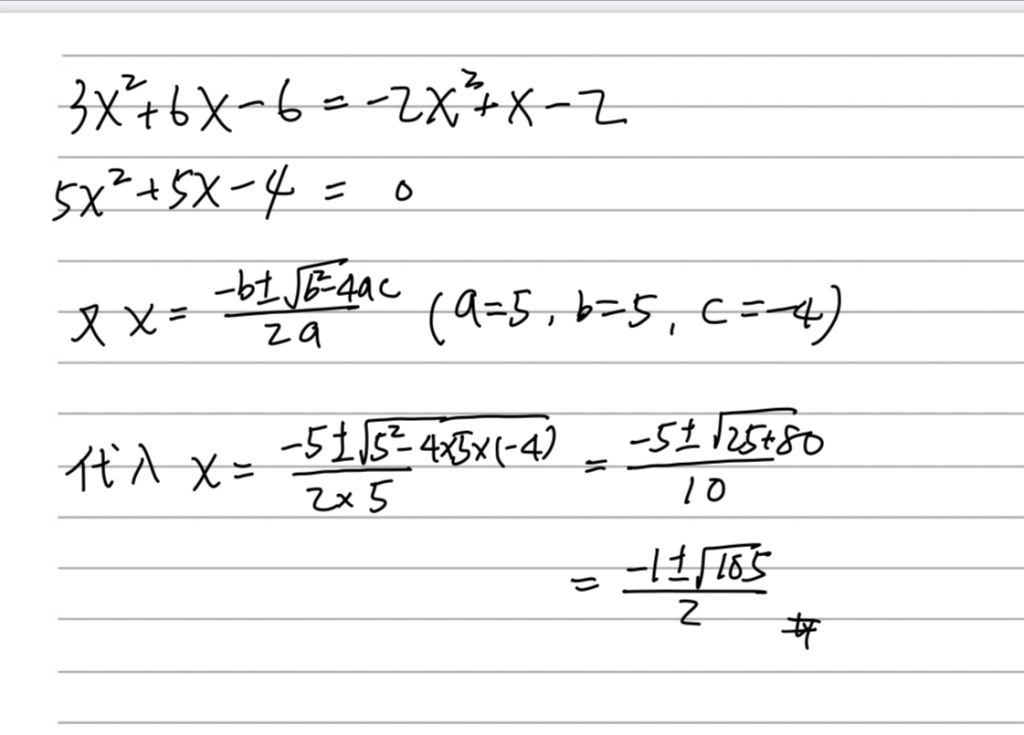 3x²+6x-6=-2x²+x-2
5x²+5x-4=0
又 x=(-b±√(b²-4ac))/(2a) (a=5, b=5, c=-4)
代入 x=(-5±√(5²-4×5×(-4)))/(2×5)=(-5±√(25+80))/10
=(-1±√105)/2